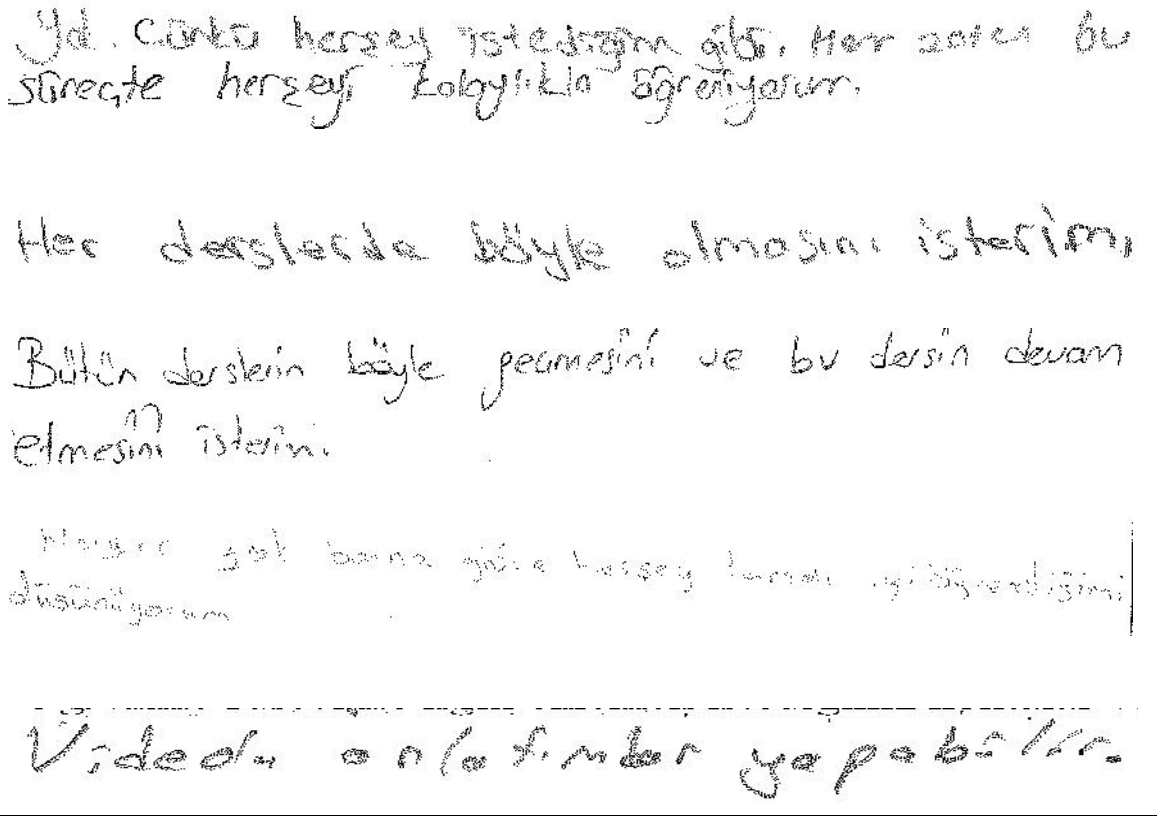 Yd. Cünkü herşey istediğim gibi. Her zaten bu
süreçte herşeyi kolaylıkla öğreniyorum.
Her derslerde böyle olmasını isterim,
Bütün derslerin böyle geçmesini ve bu dersin devam
etmesini isterim.
Hayır yok bana göre herşey tamdı iyi öğrendiğimi
düşünüyorum
Videolu anlatımlar yapabilir.